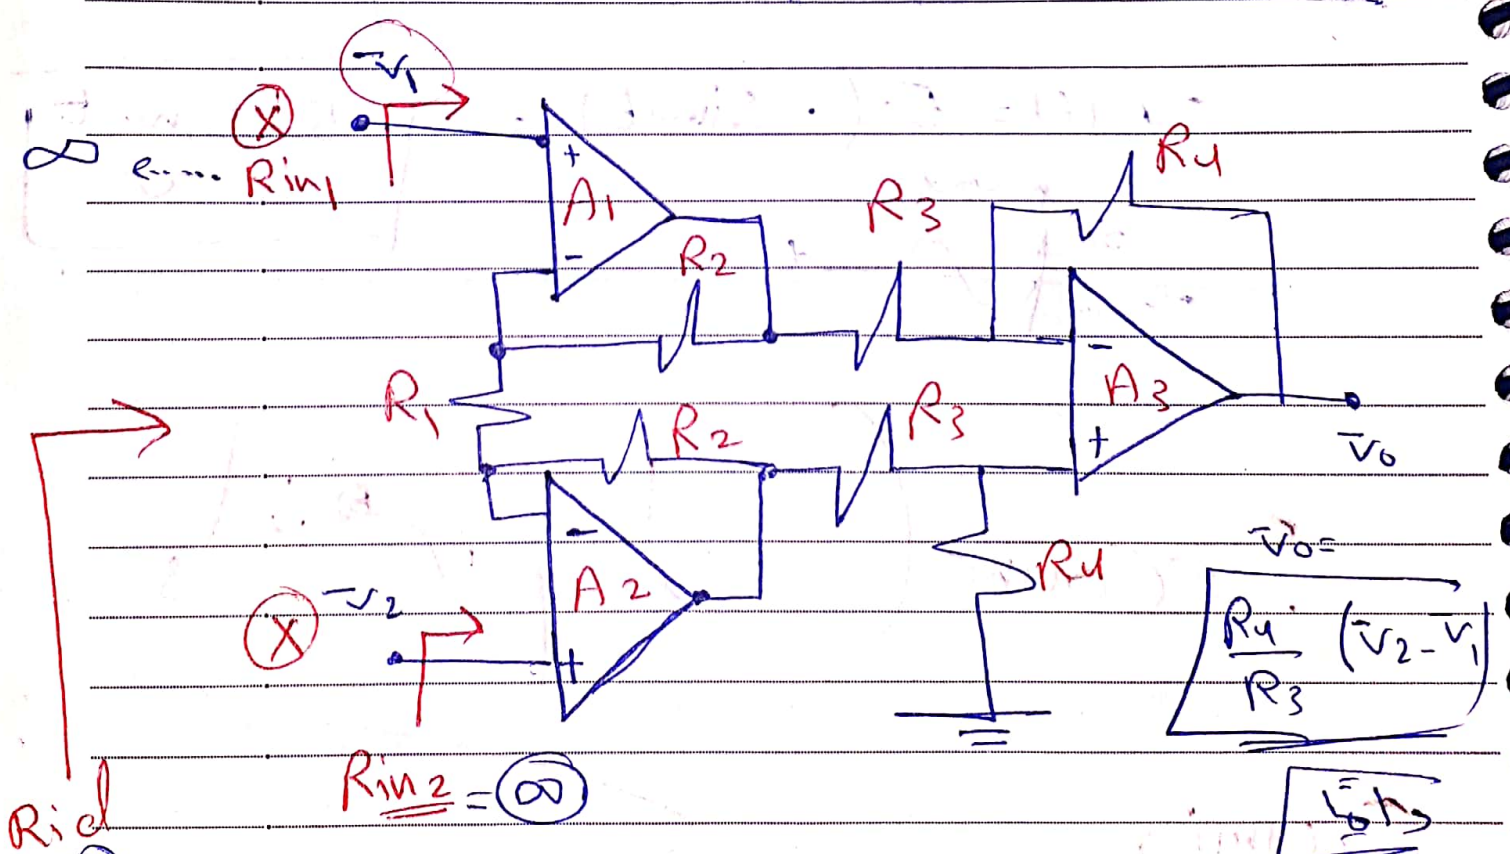 v1
X
∞ Rin1
+
A1
-
R2
R3
R4
R1
R2
R3
-
A3
+
v0
-
A2
+
R4
v2
X
v0 =
R4/R3 (v2 - v1)
Rin2 = ∞
Rid